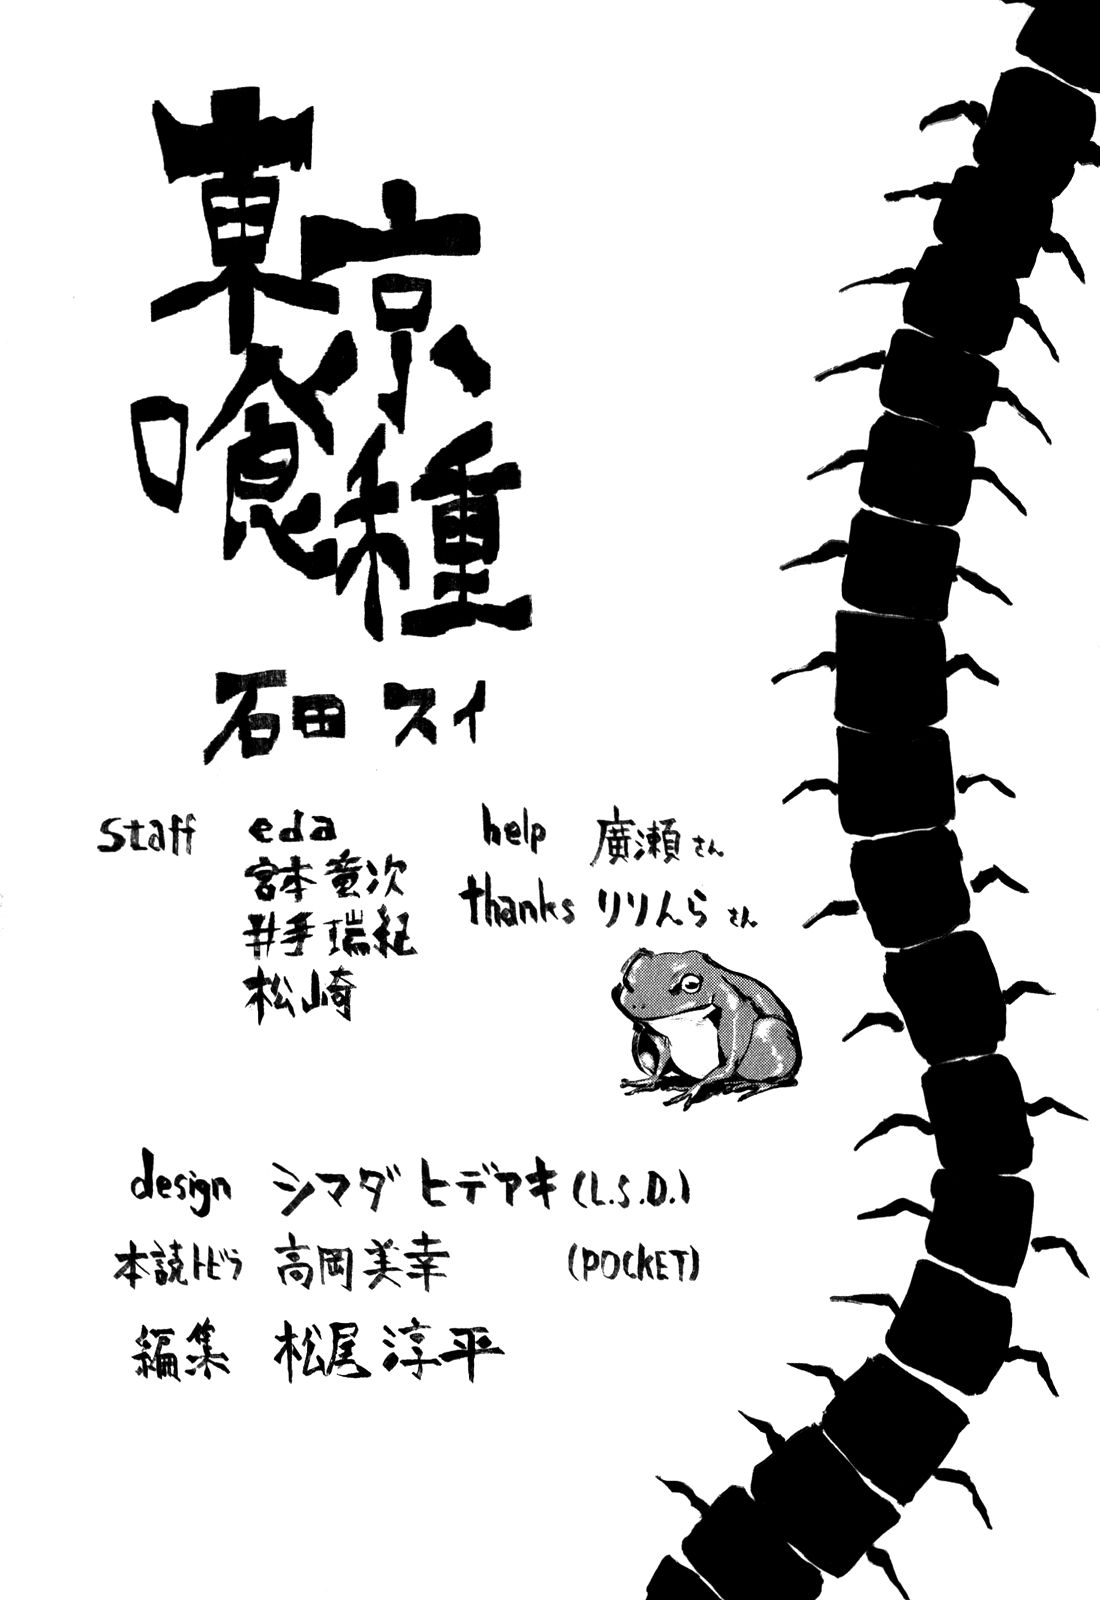 東京
喰種
石田スイ
staff eda
宮本竜次
井手瑞紀
松崎
help 廣瀬さん
thanks りりんらさん
design シマダヒデアキ (L.S.D.)
本読トビラ 高岡美幸 (POCKET)
編集 松尾淳平